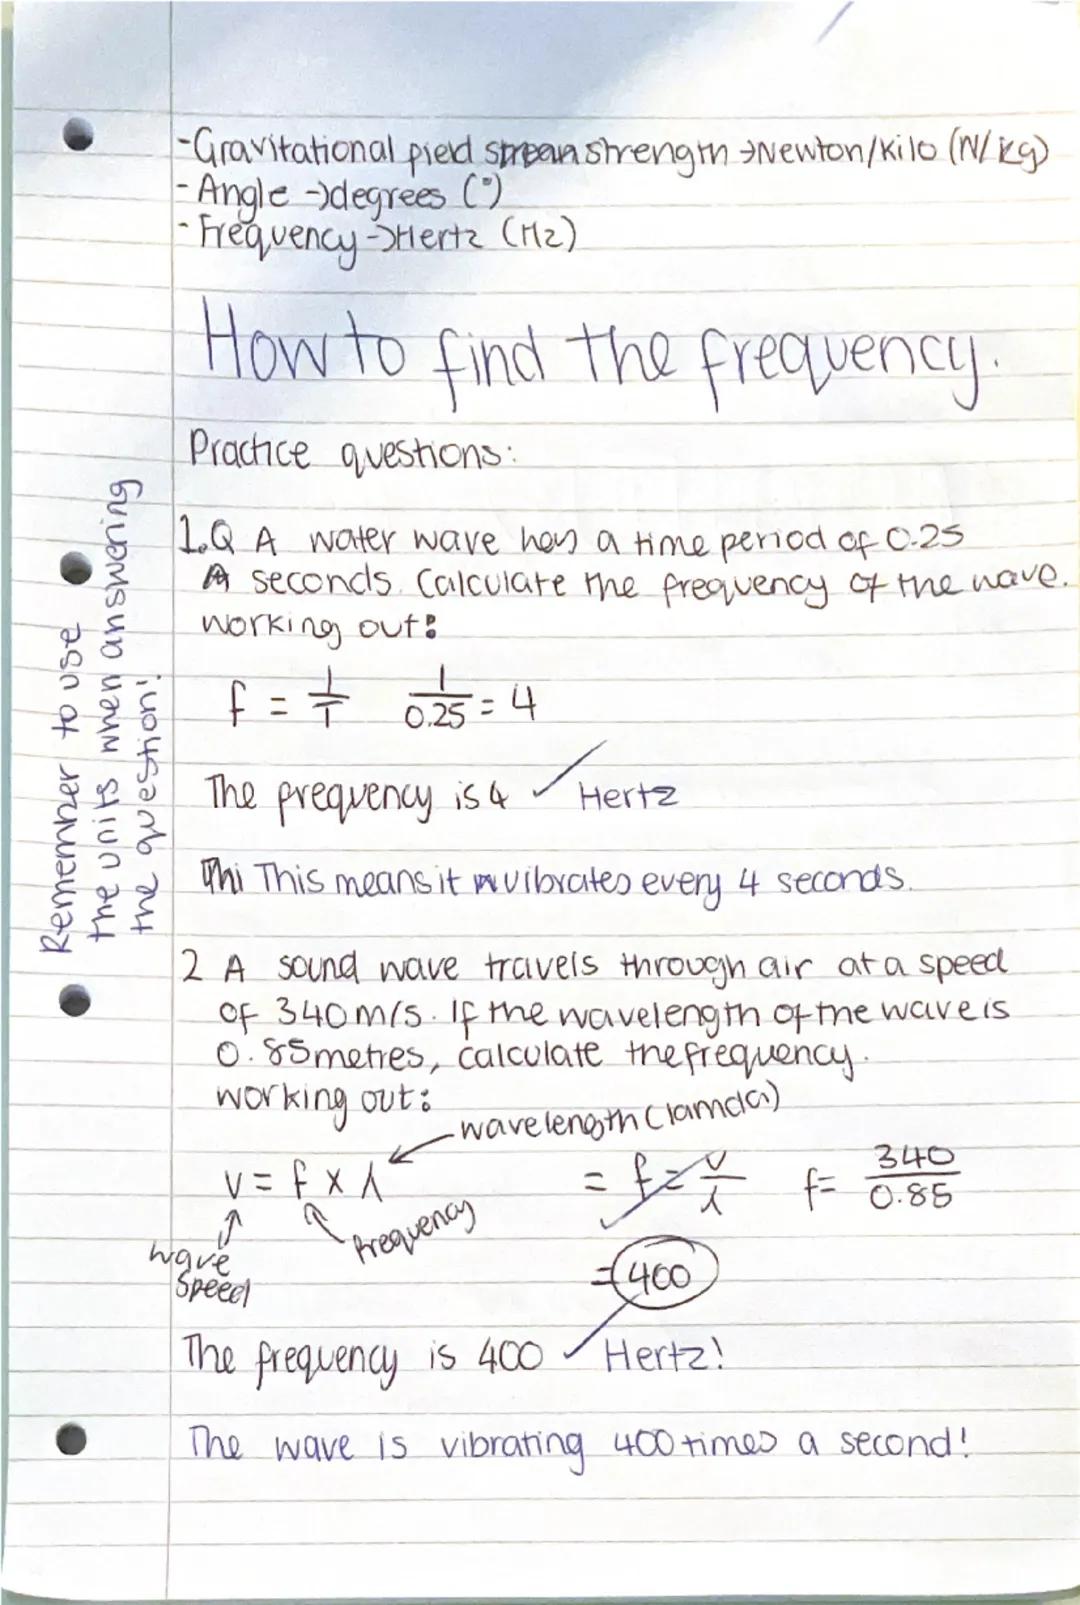 -Gravitational field strength →Newton/kilo (N/kg)
- Angle →degrees (°)
- Frequency →Hertz (Hz)
How to find the frequency.
Practice questions:
1.Q A water wave has a time period of 0.25
seconds. Calculate the frequency of the wave.
working out:
f = 1/T 1/0.25 = 4
The frequency is 4 ✓ Hertz
This means it vibrates every 4 seconds.
Remember to use
the units when answering
the question!
2 A sound wave travels through air at a speed
of 340m/s. If the wavelength of the wave is
0.85metres, calculate the frequency.
working out:
wavelength (lamda)
v = f x λ = f = v/λ f= 340/0.85
frequency
wave
speed
= 400
The frequency is 400 ✓ Hertz!
The wave is vibrating 400 times a second!